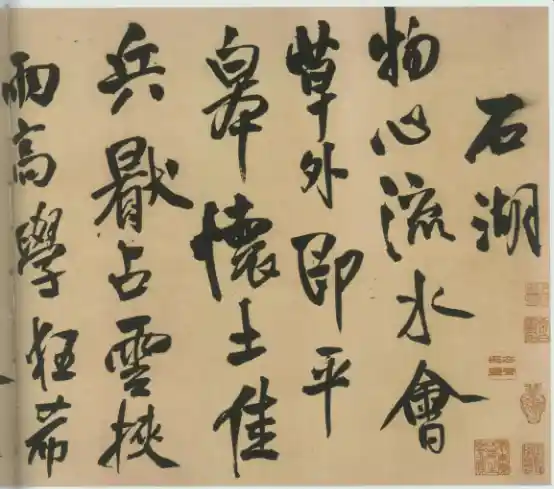 石湖
物心流水會
草外即平
皋懷土佳
兵厭占雲挾
兩高學狂希